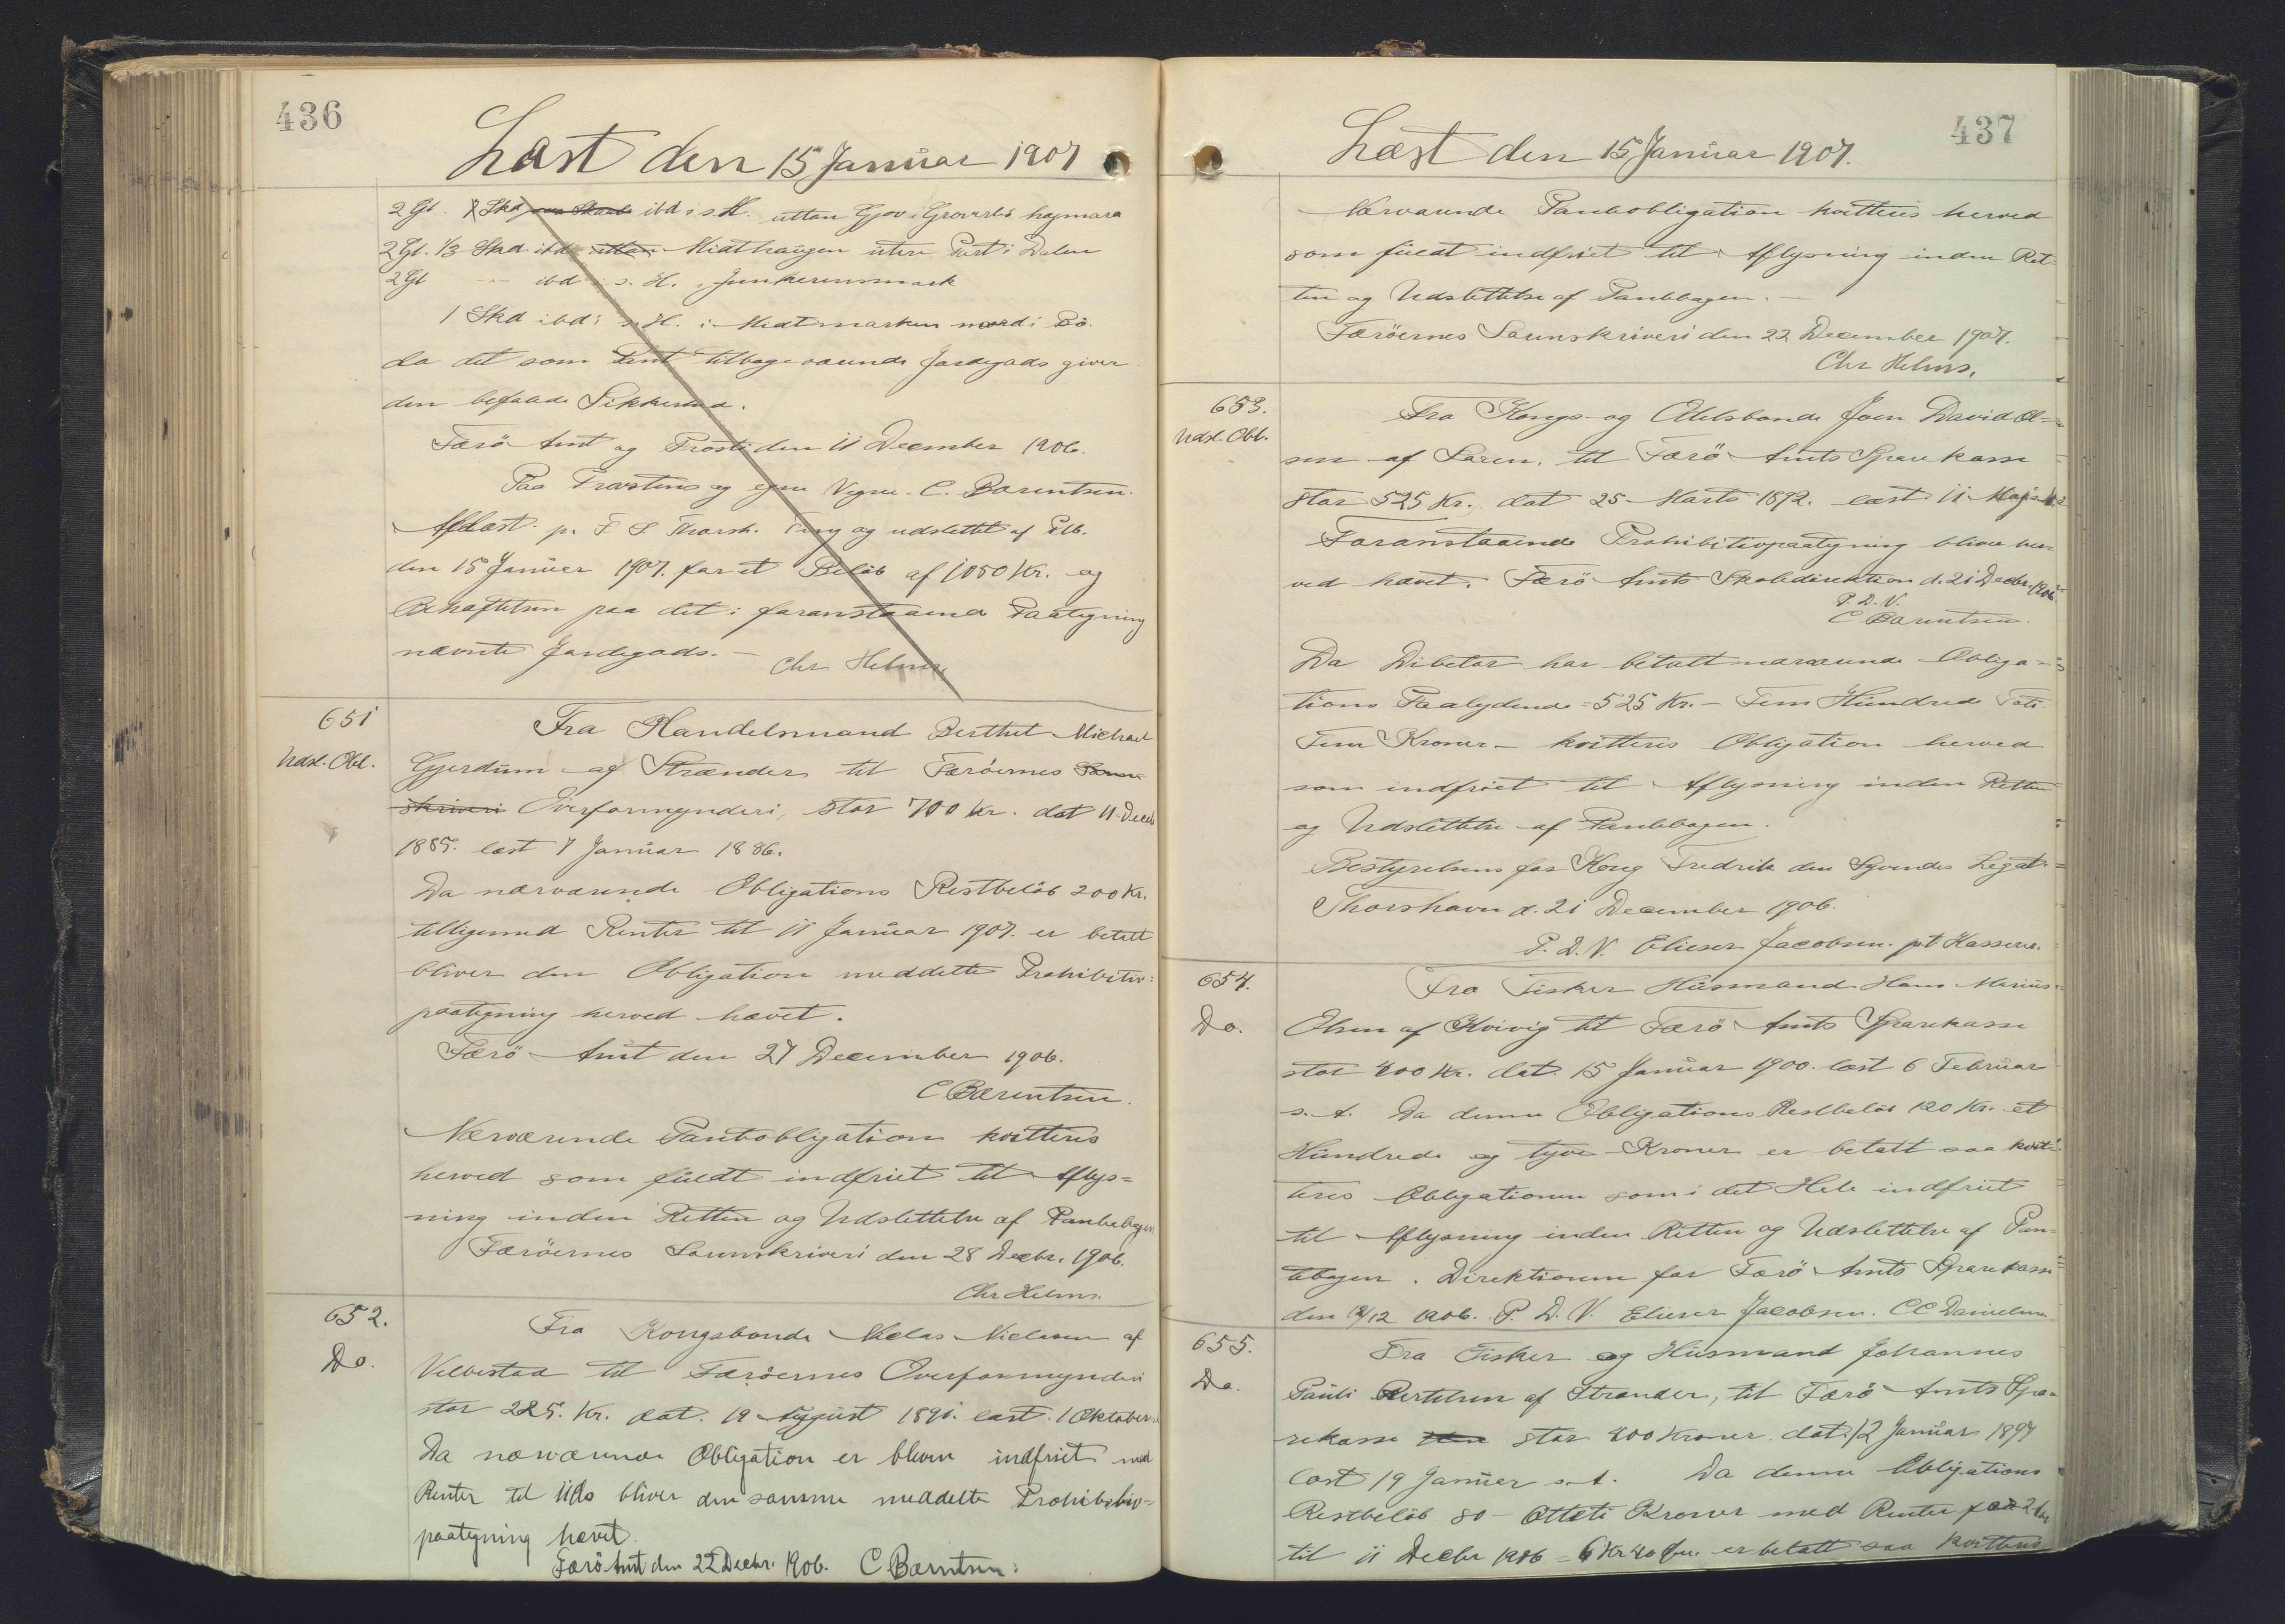 436
Læst den 15 Januar 1907
2 Gl. Skd ibd i s. H. uttan Gjov i
2 Gl. 1/3 Skd ibd Midthaugen utere Part i Dalen
2 Gl ibd i s. H. i Junkerensmark
1 Skd ibd i s. H. i Midtmarken nord i Bö.
da det som Pant tilbageværende Jordegods giver
den befalede Sikkerhed.
Færö Amt og Provsti den 11 December 1906.
Paa Provstens og egne Vegne. C. Bærentsen.
Aflæst p. F S Thorsh. Ting og udslettet af Ptb.
den 15 Januar 1907. for et Belöb af 1050 Kr. og
Behæftelsen paa det i foranstaaende Paategning
nævnte Jordegods. — Chr Helms
651
Udsl. Obl.
Fra Handelsmand Berthel Michael
Gjerdum af Strænder til Færöernes Sorn-
skriveri Overformynderi, stor 700 Kr. dat 11 Decbr
1885. læst 7 Januar 1886.
Da nærværende Obligations Restbelöb 200 Kr.
tilligemed Renter til 11 Januar 1907. er betalt
bliver den Obligation meddelte Prohibitiv:
paategning herved hævet.
Færö Amt den 27 December 1906.
C Bærentsen.
Nærværende Pantobligation kvitteres
herved som fuldt indfriet til Aflys=
ning inden Retten og Udslettelse af Pantebogen.
Færöernes Sorenskriveri den 28 Decbr. 1906.
Chr Helms.
652.
Do.
Fra Kongsbonde Niclas Niclasen af
Velbestad til Færöernes Overformynderi
stor 225. Kr. dat. 19 August 1891. læst. 1 Oktober
Da nærværende Obligation er bleven indfriet med
Renter til bliver den samme meddelte Prohibitiv=
paategning hævet.
Færö Amt den 22 Decbr. 1906. C Bærentsen.
437
Læst den 15 Januar 1907.
Nærværende Pantobligation kvitteres herved
som fuldt indfriet til Aflysning inden Ret-
ten og Udslettelse af Pantebogen. —
Færöernes Sorenskriveri den 22 December 1907.
Chr Helms.
653.
Udsl. Obl.
Fra Kongs- og Odelsbonde Joen David Ol-
sen af til Færö Amts Sparekasse
stor 525 Kr. dat 25 Marts 1892. læst 11 Maj
Foranstaaende Prohibitivpaategning bliver her-
ved hævet. Færö Amts Skoledirektion d. 21 Decbr. 1906.
P. D. V.
C Bærentsen.
Da Debitor har betalt nærværende Obliga-
tions Paalydende = 525 Kr. — Fem Hundred Toti
Fem Kroner — kvitteres Obligation herved
som indfriet til Aflysning inden Retten
og Udslettelse af Pantebogen.
Bestyrelsens for Kong Fredrik den Syvendes Legat
Thorshavn d. 21 December 1906.
P. D. V. Elieser Jacobsen. pt Kasserer.
654.
Do.
Fra Fisker Husmand Hans Marius
Olsen af Kvivig til Færö Amts Sparekasse
stor 400 Kr. dat. 15 Januar 1900. læst 6 Februar
s. A. Da denne Obligations Restbelöb 120 Kr. et
Hundrede og tyve Kroner er betalt saa kvit-
teres Obligationen som i det Hele indfriet
til Aflysning inden Retten og Udslettelse af Pan-
tebogen. Direktionen for Færö Amts Sparekasse
den /12 1906. P. D. V. Elieser Jacobsen. C C Danielsen
655.
Do.
Fra Fisker og Husmand Johannes
Pauli Bertelsen af Strænder, til Færö Amts Spa-
rekasse stor 400 Kroner. dat. 12 Januar 1897
læst 19 Januar s. A. Da denne Obligations
Restbelöb 80 — Otteti Kroner med Renter for 2
til 11 Decbr 1906 = 6 Kr 40 Öre er betalt saa kvitteres